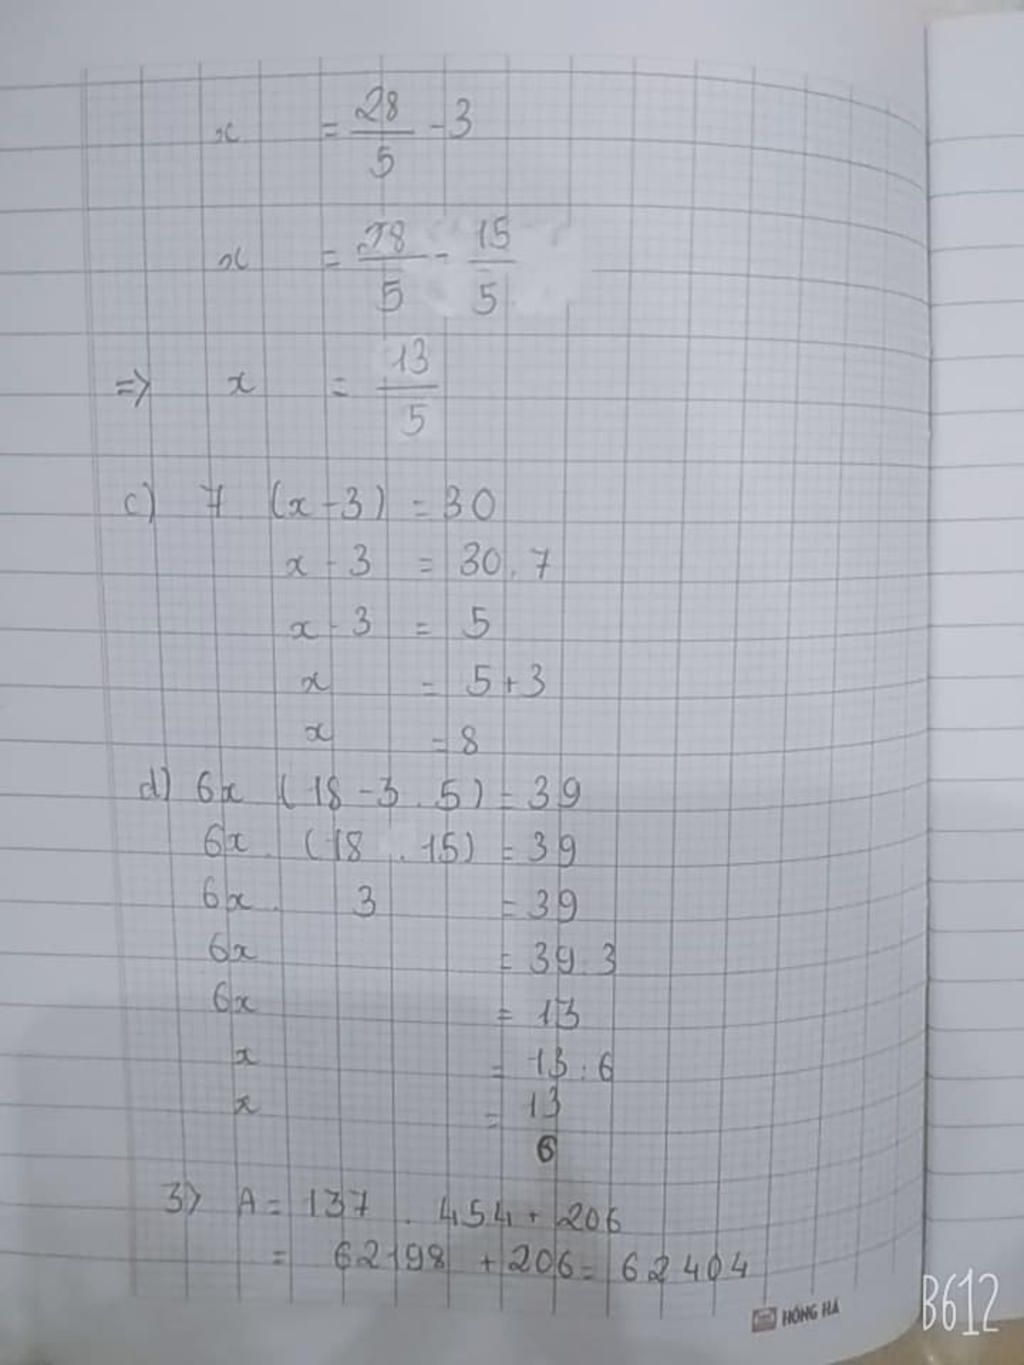 x = 28/5 - 3
x = 28/5 - 15/5
=> x = 13/5
c) 7 (x - 3) = 30
x - 3 = 30. 7
x - 3 = 5
x = 5 + 3
x = 8
d) 6x (18 - 3 . 5) = 39
6x . (18 . 15) = 39
6x . 3 = 39
6x = 39 . 3
6x = 13
x = 13 : 6
x = 13/6
3> A = 137 . 454 + 206
= 62198 + 206 = 62404
HỒNG HÀ
B612